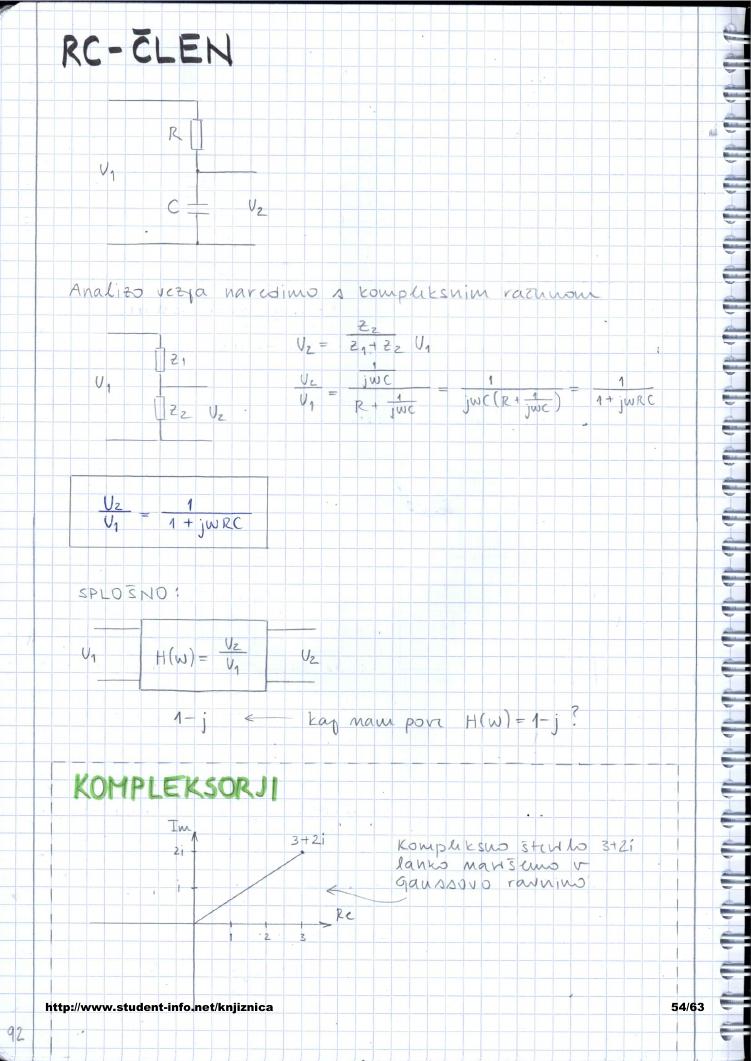 RC-ČLEN
R
U1
C
U2
Analizo vezja naredimo s kompleksnim računom
Z1
U1
Z2 U2
U2 = Z2/(Z1+Z2) U1
U2/U1 = (1/(jωC))/(R + 1/(jωC)) = 1/(jωC(R + 1/(jωC))) = 1/(1 + jωRC)
U2/U1 = 1/(1 + jωRC)
SPLOŠNO:
U1 H(ω) = U2/U1 U2
1-j ← kaj nam pove H(ω) = 1-j ?
KOMPLEKSORJI
Im
3+2i
2i
1
Re
1 2 3
Kompleksno število 3+2i
lahko narišemo v
Gaussovo ravnino
http://www.student-info.net/knjiznica
54/63
92